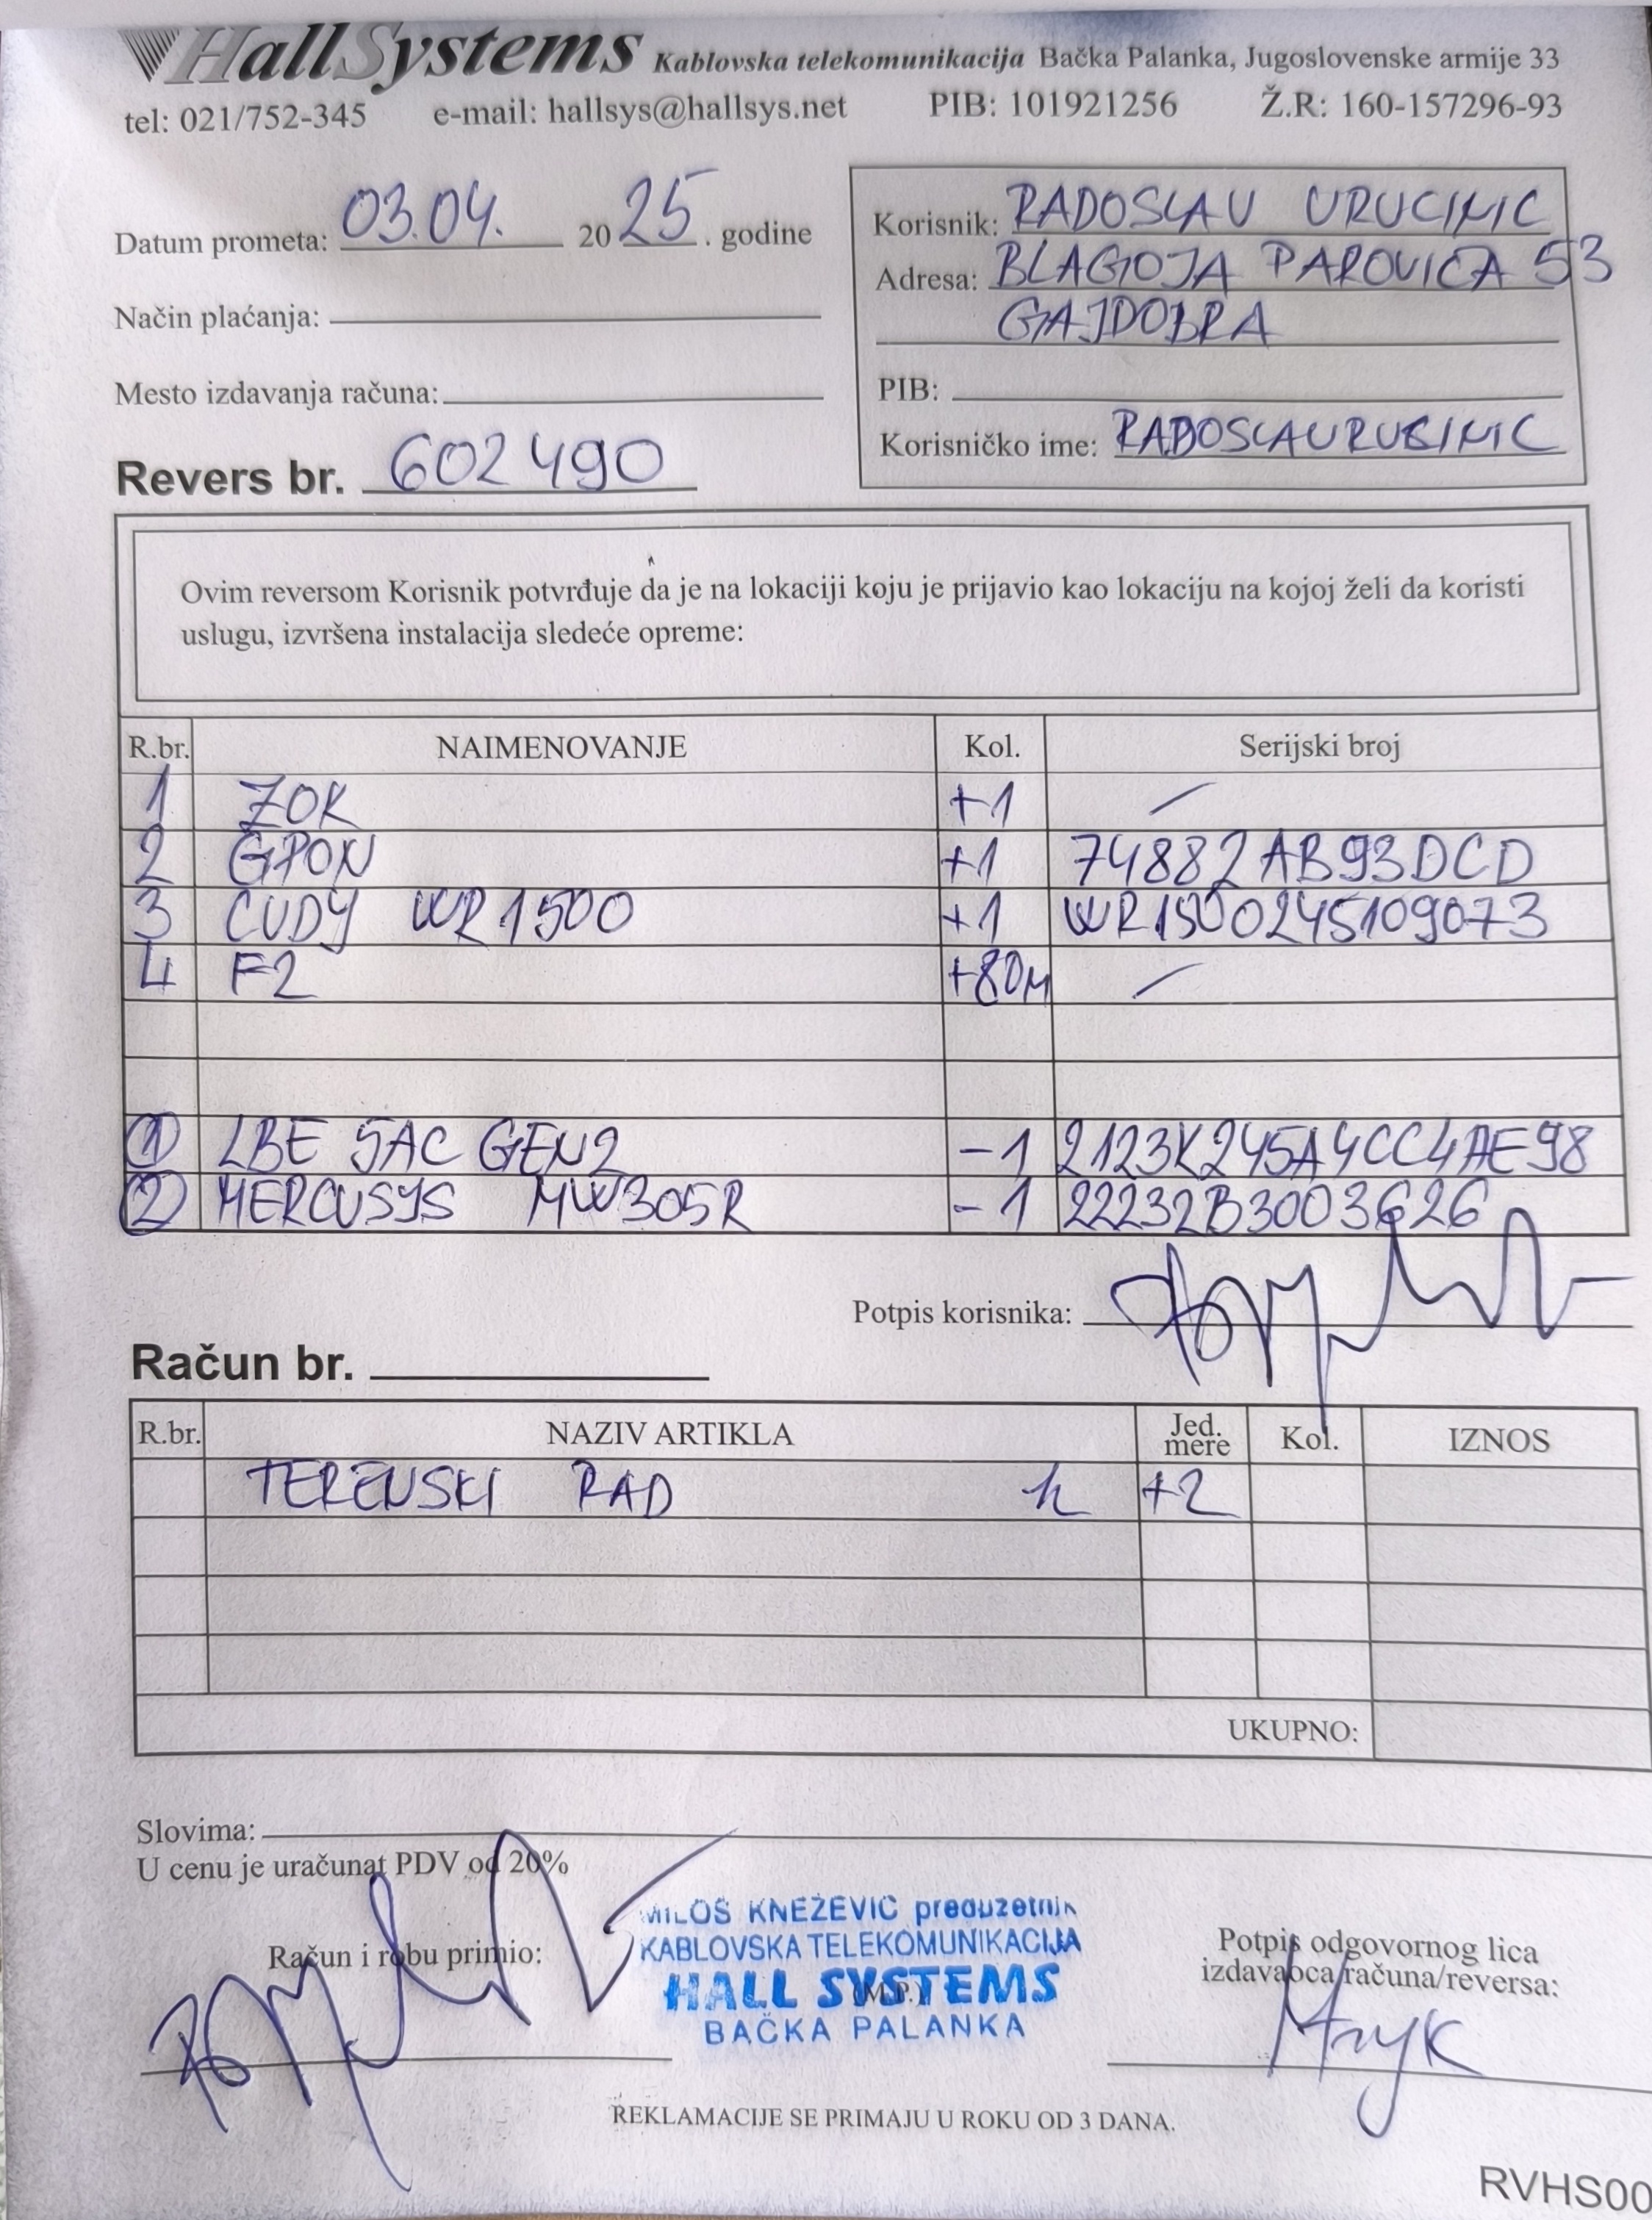 HallSystems Kablovska telekomunikacija Bačka Palanka, Jugoslovenske armije 33
tel: 021/752-345 e-mail: hallsys@hallsys.net PIB: 101921256 Ž.R: 160-157296-93
Datum prometa: 03.04. 2025. godine
Način plaćanja:
Mesto izdavanja računa:
Revers br. 602490
Korisnik: RADOSLAV URUCINIC
Adresa: BLAGOJA PAROVIĆA 53
GAJDOBRA
PIB:
Korisničko ime:
Ovim reversom Korisnik potvrđuje da je na lokaciji koju je prijavio kao lokaciju na kojoj želi da koristi
uslugu, izvršena instalacija sledeće opreme:
R.br. NAIMENOVANJE Kol. Serijski broj
1 ZOK +1 /
2 GPON +1 74882AB93DCD
3 CUDY WR1500 +1 WR1500245109073
4 F2 +80m /
1 LBE 5AC GEN2 -1 2123K245A4CC4AE98
2 MERCUSYS MW305R -1 22232B3003626
Potpis korisnika:
Račun br.
R.br. NAZIV ARTIKLA Jed. mere Kol. IZNOS
TERENSKI RAD h +2
UKUPNO:
Slovima:
U cenu je uračunat PDV od 20%
Račun i robu primio:
MILOŠ KNEŽEVIĆ preduzetnik
KABLOVSKA TELEKOMUNIKACIJA
HALL SYSTEMS
(M.P.)
BAČKA PALANKA
Potpis odgovornog lica
izdavaoca računa/reversa:
REKLAMACIJE SE PRIMAJU U ROKU OD 3 DANA.
RVHS00